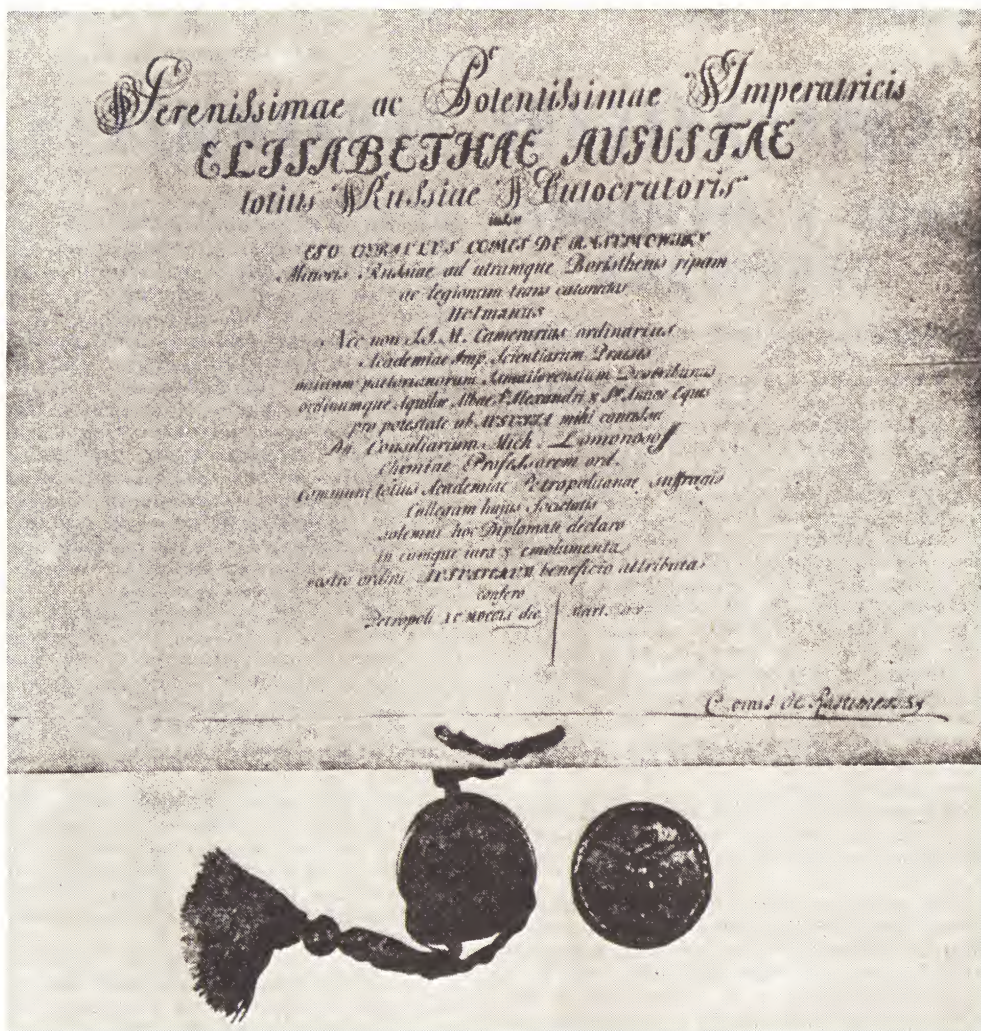 Serenissimae ac Potentissimae Imperatricis
ELISABETHAE AUGUSTAE
totius Russiae Autocratoris
iussu
EGO CYRILLUS COMES DE RASUMOWSKY
Minoris Russiae ad utramque Boristhenis ripam
ac legionum trans cataractas
Hetmanus
Nec non S.I.M. Camerarius ordinarius
Academiae Imp. Scientiarum Praeses
militum praetorianorum Ismailoviensium
ordinumque Aquilae Albae S. Alexandri & Stae Annae Eques
pro potestate ab AUGUSTA mihi concessa
Consiliarium Mich. Lomonosoff
Chemiae Professorem ord.
communi totius Academiae Petropolitanae suffragio
Collegam hujus Societatis
solemni hoc Diplomate declaro
in eumque iura & emolumenta
nostro ordini AUGUSTAEUM beneficio attributa
confero
Petropoli die Mart.
Comes de Rasumowsky